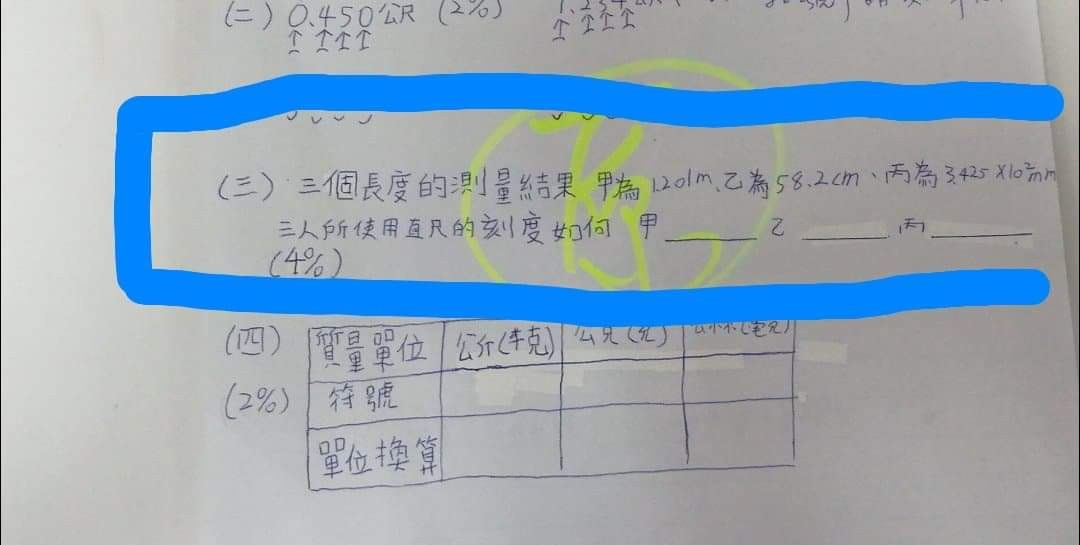 (二) 0.450公尺 (2%)
↑ ↑↑↑ ↑ ↑↑↑
(三) 三個長度的測量結果 甲為 1.201m、乙為58.2cm、丙為3.425×10²mm
三人所使用直尺的刻度如何 甲______ 乙______ 丙______
(4%)
(四) 質量單位 公斤(千克) 公克(克) (毫克)
(2%) 符號
單位換算